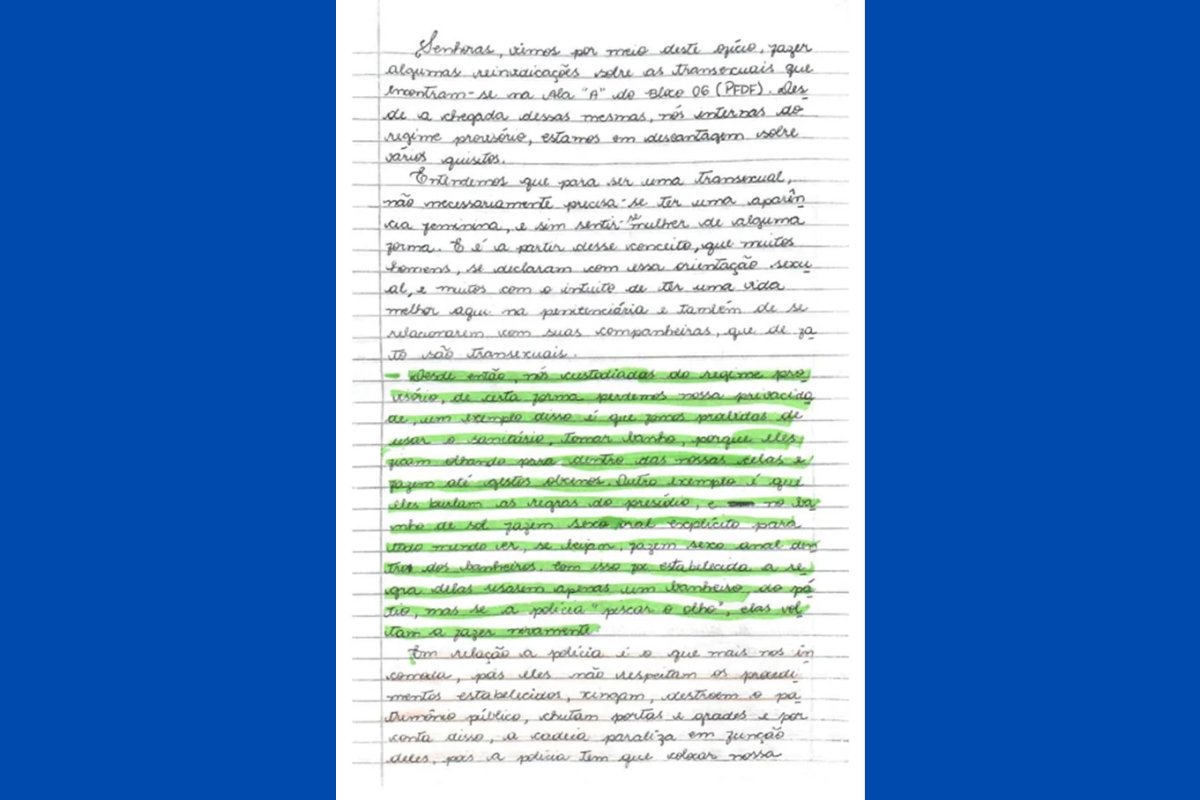 Senhoras, vimos por meio deste ofício, fazer
algumas reinvidicações sobre as transexuais que
encontram-se na Ala "A" do Bloco 06 (PFDF). Des-
de a chegada dessas mesmas, nós internas do
regime provisório, estamos em desvantagem sobre
vários quisitos.
Entendemos que para ser uma transexual,
não necessariamente precisa-se ter uma aparên
cia feminina, e sim sentir-se mulher de alguma
forma. E é a partir desse conceito, que muitos
homens, se declaram com essa orientação sexu
al, e muitos com o intuito de ter uma vida
melhor aqui na penitenciária e também de se
relacionarem com suas companheiras, que de fa
to são transexuais.
- Desde então, nós custodiadas do regime pro
visório, de certa forma perdemos nossa privacida
de, um exemplo disso é que fomos proibidas de
usar o sanitário, tomar banho, porque eles
ficam olhando para dentro das nossas celas e
fazem até gestos obcenos. Outro exemplo é que
eles burlam as regras do presídio, e no ba
nho de sol fazem sexo oral explícito para
todo mundo ver, se beijam, fazem sexo anal den
tro dos banheiros. Com isso foi estabelecido a re
gra delas usarem apenas um banheiro, do pá
tio, mas se a polícia "piscar o olho", elas vol
tam a fazer novamente
Em relação a polícia é o que mais nos in
comoda, pois eles não respeitam os procedi
mentos estabelecidos, xingam, destroem o pa
trimônio público, chutam portas e grades e por
conta disso, a cadeia paraliza em função
deles, pois a polícia tem que colocar nossa